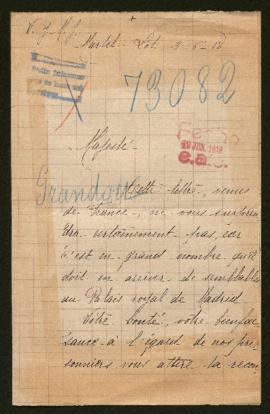 V. J. M. J.
Martel. Lot. 3-6-18
73082
JUN. 1918
e.a.
Majesté
Grandou
Cette lettre, venue
de France, ne vous surpren
dra certainement pas, car
c'est en grand nombre qu'il
doit en arriver de semblables
au Palais royal de Madrid
Votre bonté, votre bienfai
sance à l'égard de nos pri
sonniers vous attire la recon